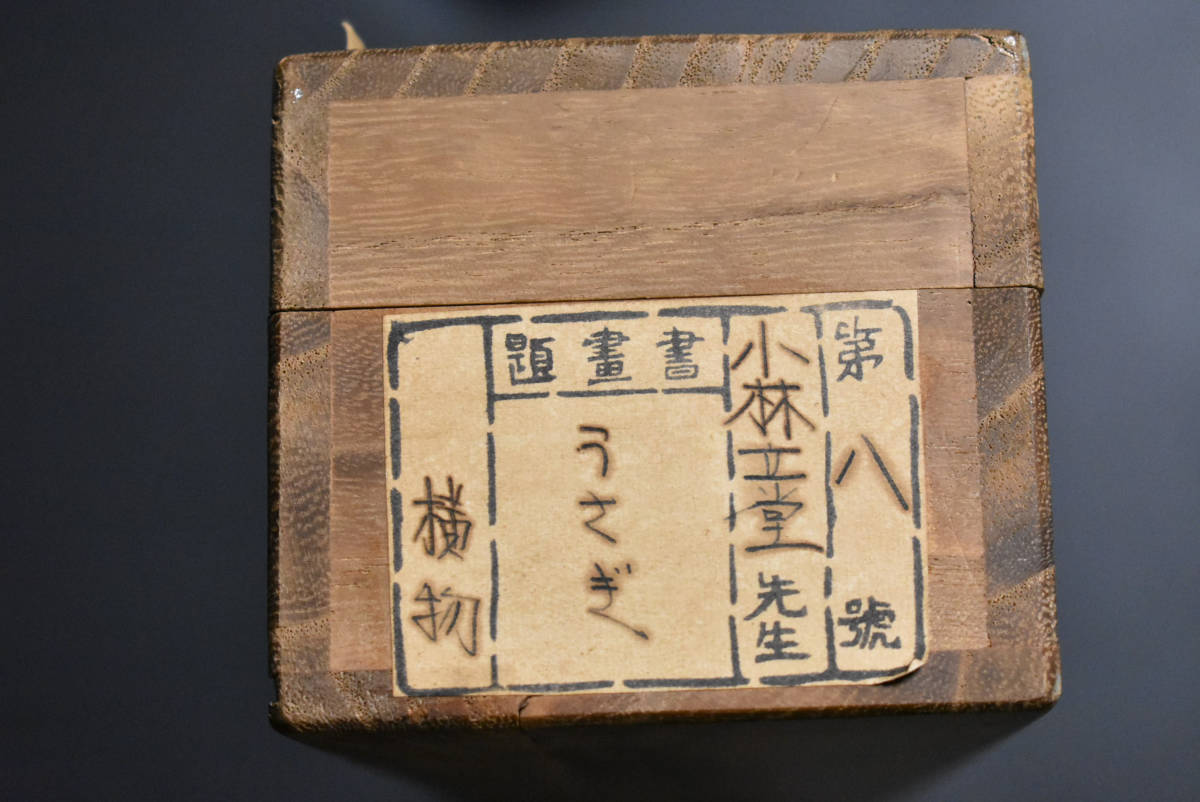 第八號
小林立堂先生
書畫題
うさぎ
横物